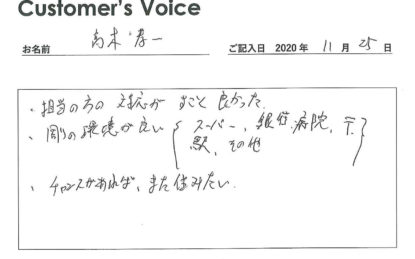 Customer's Voice
お名前 高木 孝一 ご記入日 2020年 11月 25日
・担当の方の対応がすごく良かった。
・周りの環境が良い { スーパー、銀行、病院、〒
駅、その他 }
・チャンスがあれば、また住みたい。